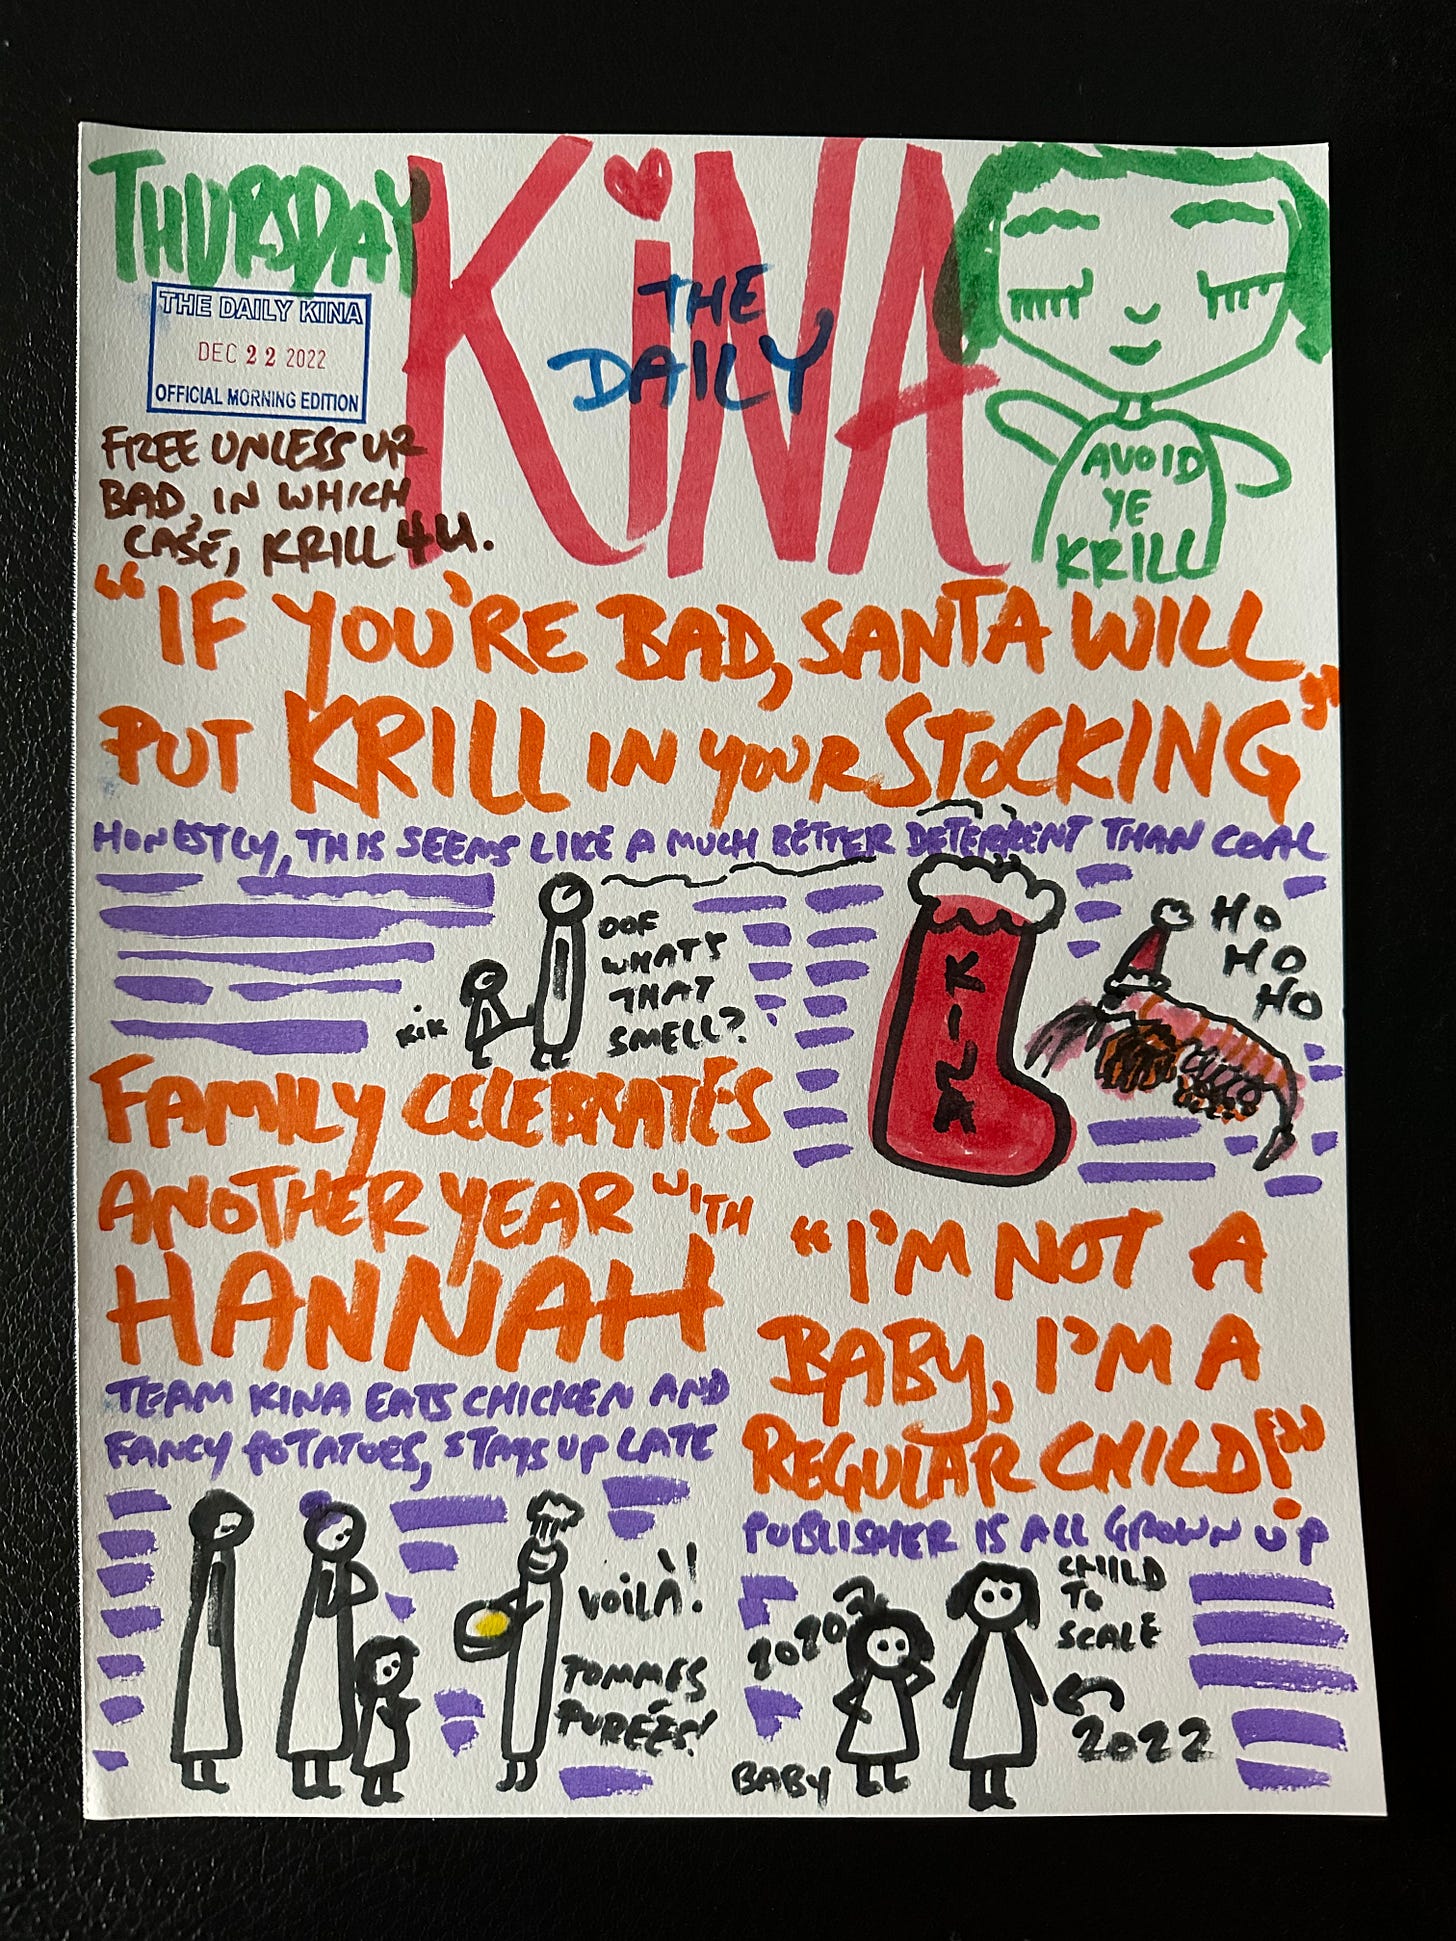 THURSDAY
KiNA
THE
DAILY
THE DAILY KINA
DEC 22 2022
OFFICIAL MORNING EDITION
FREE UNLESS UR
BAD, IN WHICH
CASE, KRILL 4 U.
AVOID
YE
KRILL
"IF YOU'RE BAD, SANTA WILL
PUT KRILL IN YOUR STOCKING"
HONESTLY, THIS SEEMS LIKE A MUCH BETTER DETERRENT THAN COAL
KIK
OOF
WHAT'S
THAT
SMELL?
KINA
HO
HO
HO
FAMILY CELEBRATES
ANOTHER YEAR WITH
HANNAH
TEAM KINA EATS CHICKEN AND
FANCY POTATOES, STAYS UP LATE
VOILÀ!
POMMES
PURÉES!
"I'M NOT A
BABY, I'M A
REGULAR CHILD!"
PUBLISHER IS ALL GROWN UP
2020
BABY
CHILD
TO
SCALE
2022